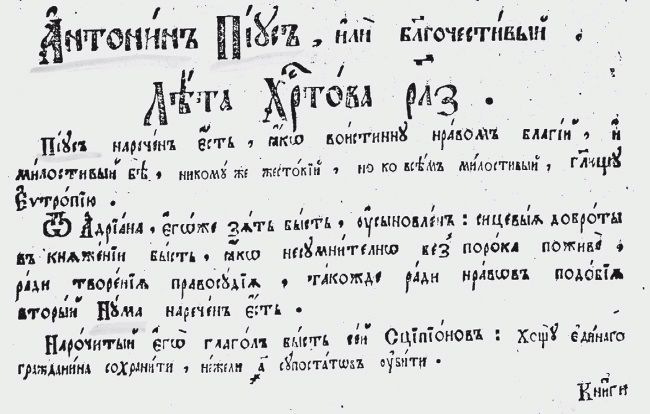 А҆нтони́нъ Пі́усъ, и҆лѝ бл҃гочести́вый.
Лѣ́та Хрⷭ҇то́ва рл҃з.
Пі́усъ нарече́нъ є҆́сть, ꙗ҆́кѡ вои́стинну нра́вомъ благі́й, и҆
ми́лостивый бѣ̀, никому́ же жесто́кїй, но ко всѣ́мъ ми́лостивый, гл҃ющу
Є҆ѵтро́пїю.
Ѿ А҆дрїа́на, є҆гѡ́же зѧ́ть бы́сть, оу҆сыновле́нъ: сицевы́ѧ добро́ты
въ кнѧже́нїи бы́сть, ꙗ҆́кѡ несумни́телнѡ без̾ поро́ка поживѐ,
ра́ди творе́нїѧ правосу́дїѧ, та́кожде ра́ди нра́вѡвъ подо́бїѧ
вторы́й Нꙋ́ма нарече́нъ є҆́сть.
Наро́читый є҆гѡ̀ глаго́лъ бы́сть се́й Сціпіо́новъ: Хощꙋ̀ є҆ди́наго
гражда́нина сохрани́ти, не́жели а҃ сꙋпоста́тѡвъ оу҆би́ти.
Кни́ги